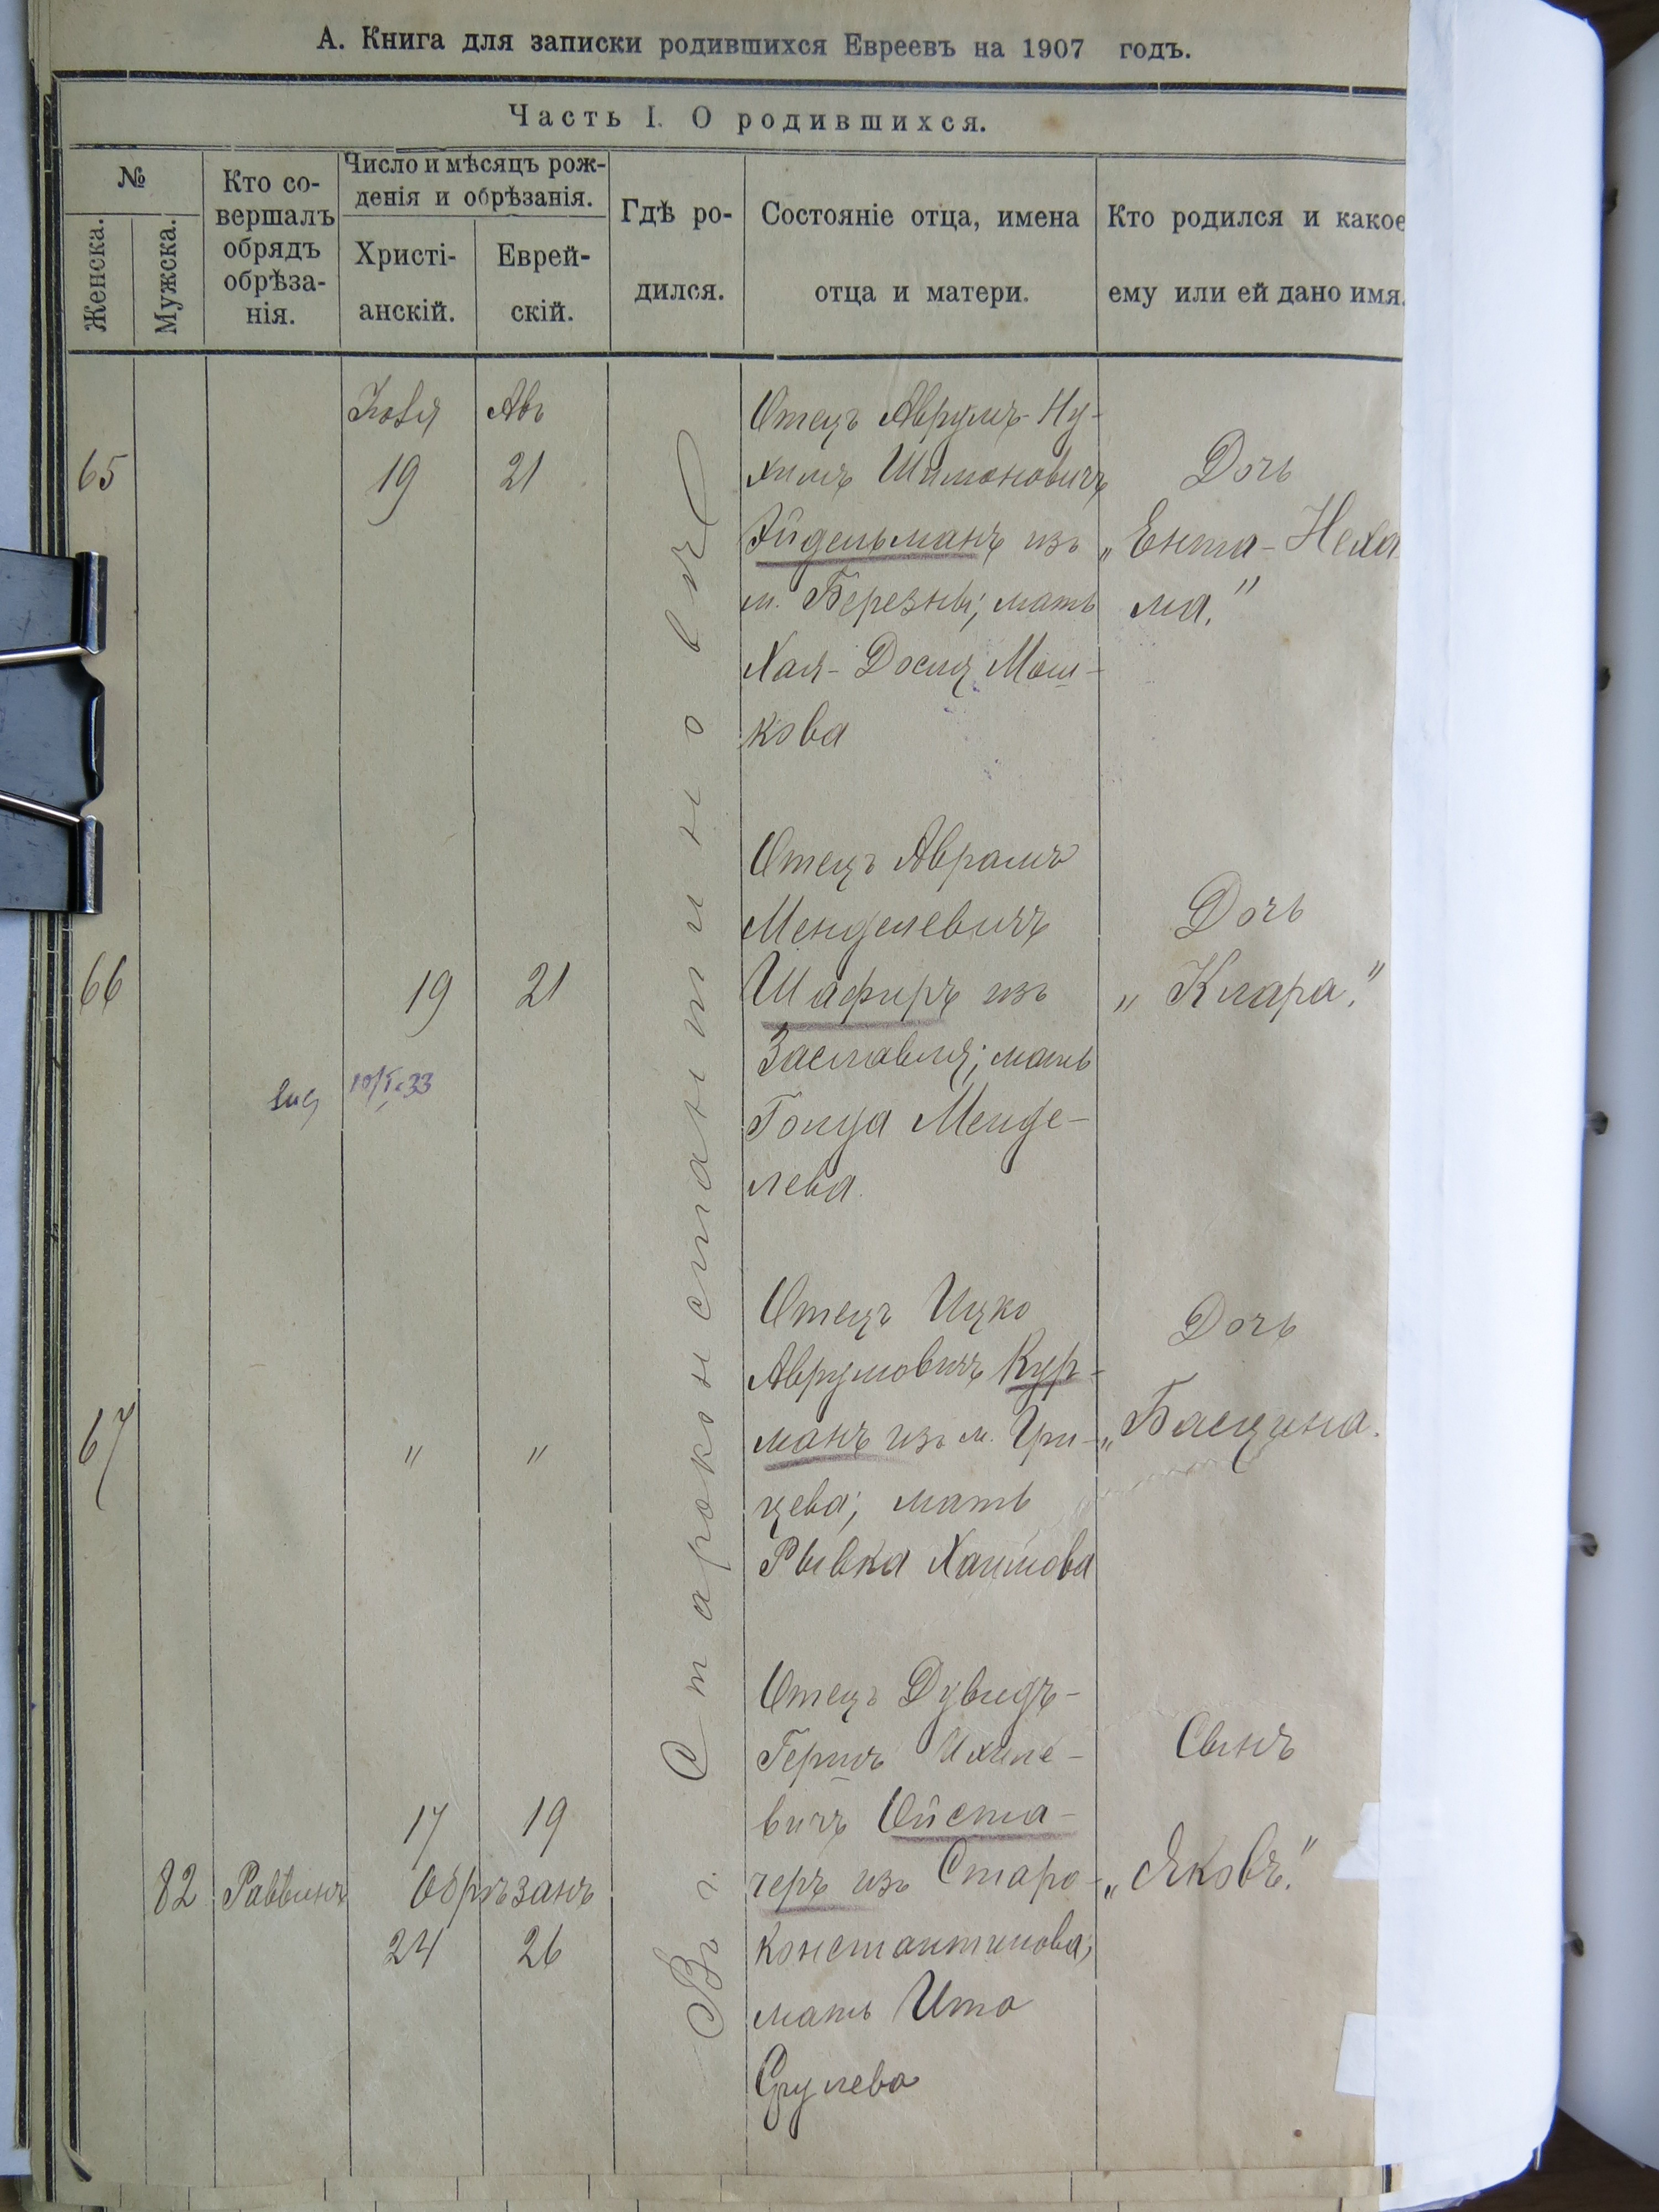 А. Книга для записки родившихся Евреевъ на 1907 годъ.
Часть I. О родившихся.
№
Женска.
Мужска.
Кто со-
вершалъ
обрядъ
обрѣза-
нія.
Число и мѣсяцъ рож-
денія и обрѣзанія.
Христі-
анскій.
Еврей-
скій.
Гдѣ ро-
дился.
Состояніе отца, имена
отца и матери.
Кто родился и какое
ему или ей дано имя.
Въ г. Староконстантиновѣ
65
Іюля
19
Авъ
21
Отецъ Аврумъ-Ну-
химъ Шимоновичъ
Эйдельманъ изъ
м. Березны; мать
Хая-Дося Мош-
кова
Дочь
„Ента-Неха
ма."
66
19
21
Отецъ Аврамъ
Менделевичъ
Шафиръ изъ
Заславля; мать
Голда Менде-
лева.
Дочь
„Клара."
10/I.33
67
"
"
Отецъ Ицко
Аврумовичъ Кур-
манъ изъ м. Гри-
цева; мать
Рывка Хаимова
Дочь
„Басшина.
82
Раввинъ
17
19
Обрѣзанъ
24
26
Отецъ Дувидъ-
Гершъ Ихиле-
вичъ Ойста-
черъ изъ Старо-
константинова;
мать Ита
Срулева
Сынъ
„Яковъ."